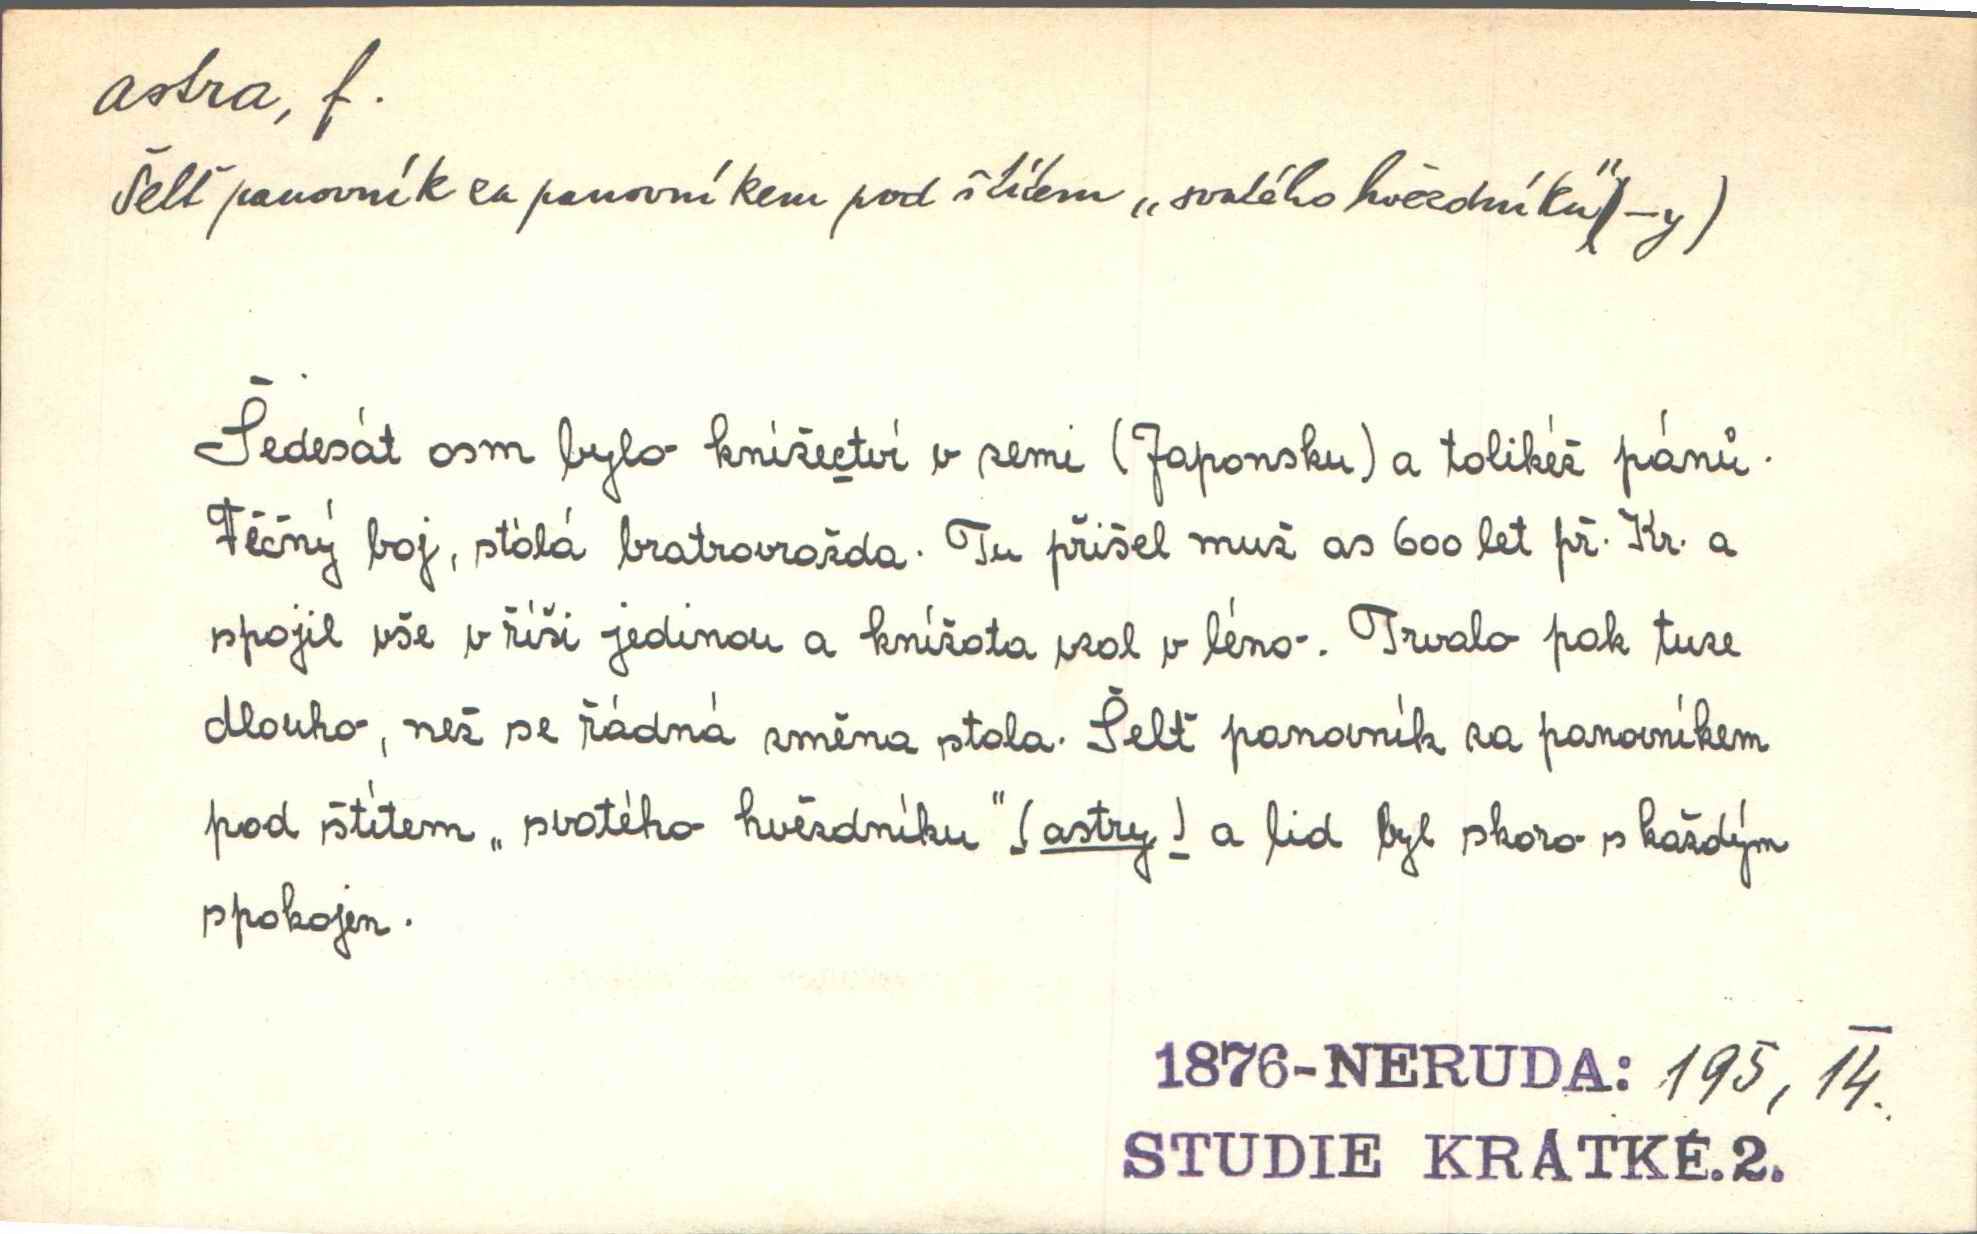 astra, f.
Šelť panovník za panovníkem pod štítem „svatého hvězdníku" (-y)
Šedesát osm bylo knížectví v zemi (Japonsku) a tolikéž pánů.
Věčný boj, stálá bratrovražda. Tu přišel muž as 600 let př. Kr. a
spojil vše v říši jedinou a knížata vzal v léno. Trvalo pak tuze
dlouho, než se řádná změna stala. Šelť panovník za panovníkem
pod štítem „svatého hvězdníku" (astry) a lid byl skoro s každým
spokojen.
1876-NERUDA: 195, 14.
STUDIE KRÁTKÉ.2.